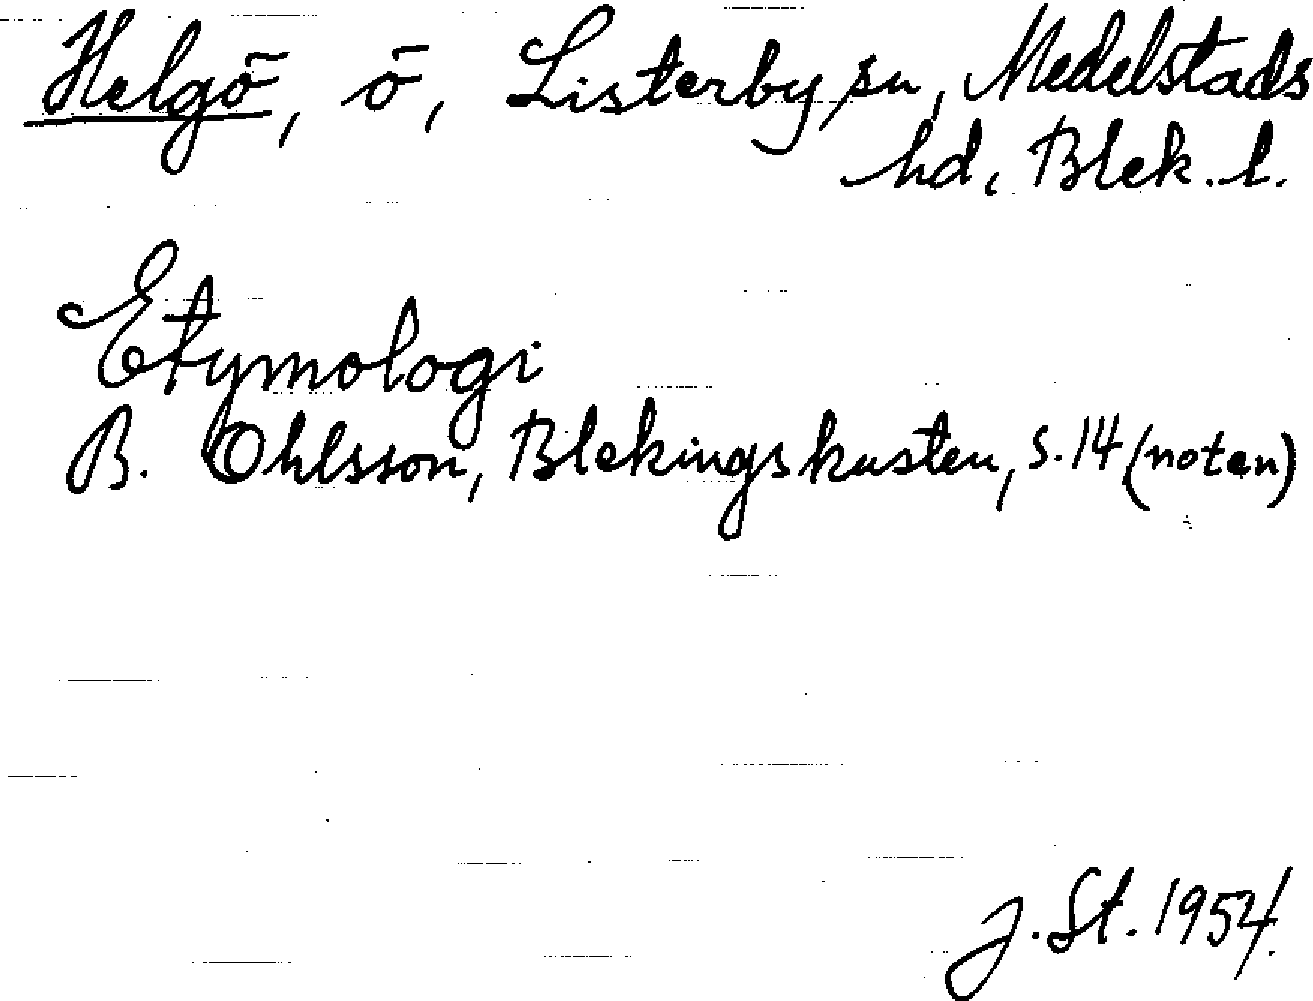 Helgö, ö, Listerby sn, Medelstads
hd, Blek. l.
Etymologi
B. Ohlsson, Blekingskusten, s. 14 (noten)
J. St. 1954.